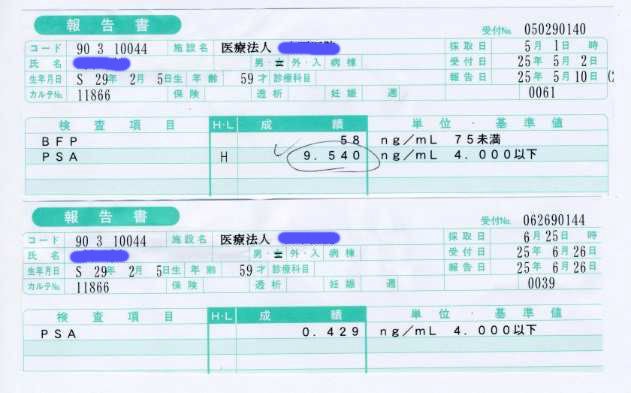 報告書
受付No. 050290140
コード 90 3 10044 施設名 医療法人 採取日 5月 1日 時
氏名 男・女 外・入 病棟 受付日 25年 5月 2日
生年月日 S 29年 2月 5日生 年齢 59才 診療科目 報告日 25年 5月10日 (2
カルテNo. 11866 保険 透析 妊娠 週 0061
検査項目 H・L 成績 単位・基準値
BFP 58 ng/mL 75未満
PSA H 9.540 ng/mL 4.000以下
報告書
受付No. 062690144
コード 90 3 10044 施設名 医療法人 採取日 6月25日 時
氏名 男・女 外・入 病棟 受付日 25年 6月26日
生年月日 S 29年 2月 5日生 年齢 59才 診療科目 報告日 25年 6月26日
カルテNo. 11866 保険 透析 妊娠 週 0039
検査項目 H・L 成績 単位・基準値
PSA 0.429 ng/mL 4.000以下